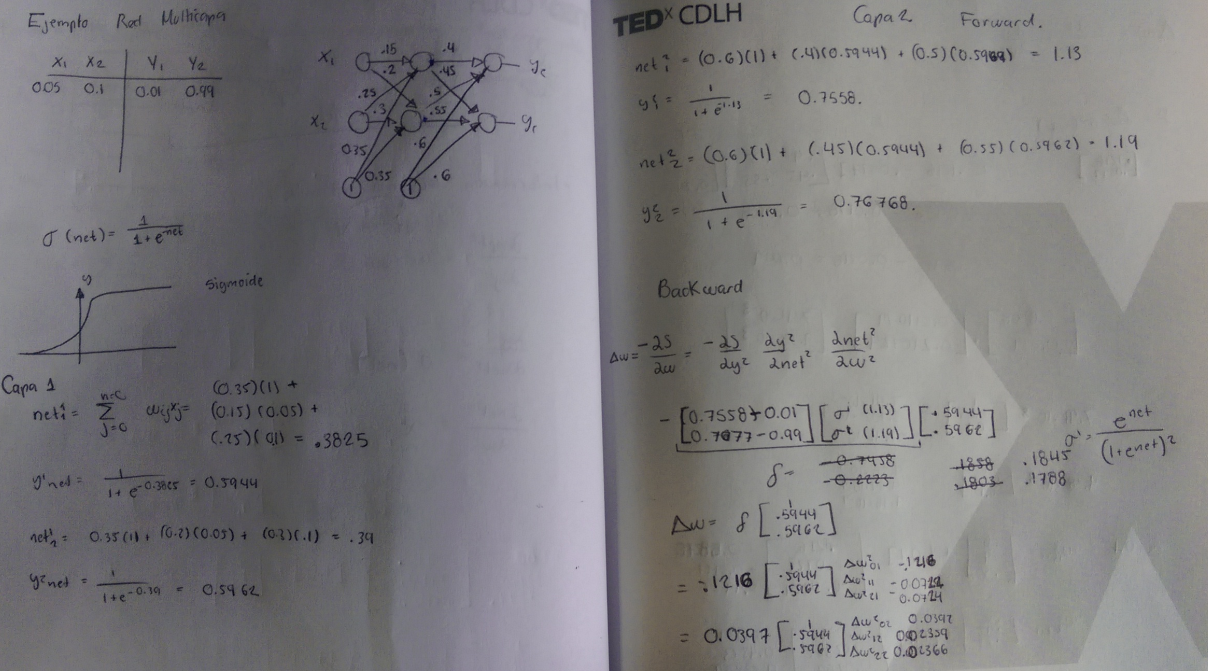 Ejemplo Red Multicapa
X₁ X₂ Y₁ Y₂
0.05 0.1 0.01 0.99
X₁ .15 .4 yc
.2 .45
.25 .5
X₂ .3 .55 y₁
0.35 .6
1 0.35 1 .6
σ(net) = 1 / (1 + e^-net)
y sigmoide
Capa 1
net₁¹ = Σ wij xj = (0.35)(1) +
(0.15)(0.05) +
(.25)(0.1) = .3825
y¹net = 1 / (1 + e^-0.3825) = 0.5944
net₂¹ = 0.35(1) + (0.2)(0.05) + (0.3)(.1) = .39
y²net = 1 / (1 + e^-0.39) = 0.5962
TEDx CDLH
Capa 2 Forward.
net₁² = (0.6)(1) + (.4)(0.5944) + (0.5)(0.5969) = 1.13
y₁² = 1 / (1 + e^-1.13) = 0.7558.
net₂² = (0.6)(1) + (.45)(0.5944) + (0.55)(0.5962) = 1.19
y₂² = 1 / (1 + e^-1.19) = 0.76768.
Backward
Δw = -∂S/∂w = -∂S/∂y² ∂y²/∂net² ∂net²/∂w²
- [0.7558 - 0.01] [σ' (1.13)] [.5944]
[0.7677 - 0.99] [σ' (1.19)] [.5962]
σ' = e^net / (1 + e^net)²
δ = -0.7458 .1858 .1845
-0.2223 .1803 .1788
Δw = δ [1 .5944 .5962]
= -.1216 [1 .5944 .5962] Δw²₀₁ -.1216
Δw²₁₁ -0.0722
Δw²₂₁ -0.0724
= 0.0397 [1 .5944 .5962] Δw²₀₂ 0.0397
Δw²₁₂ 0.02359
Δw²₂₂ 0.02366